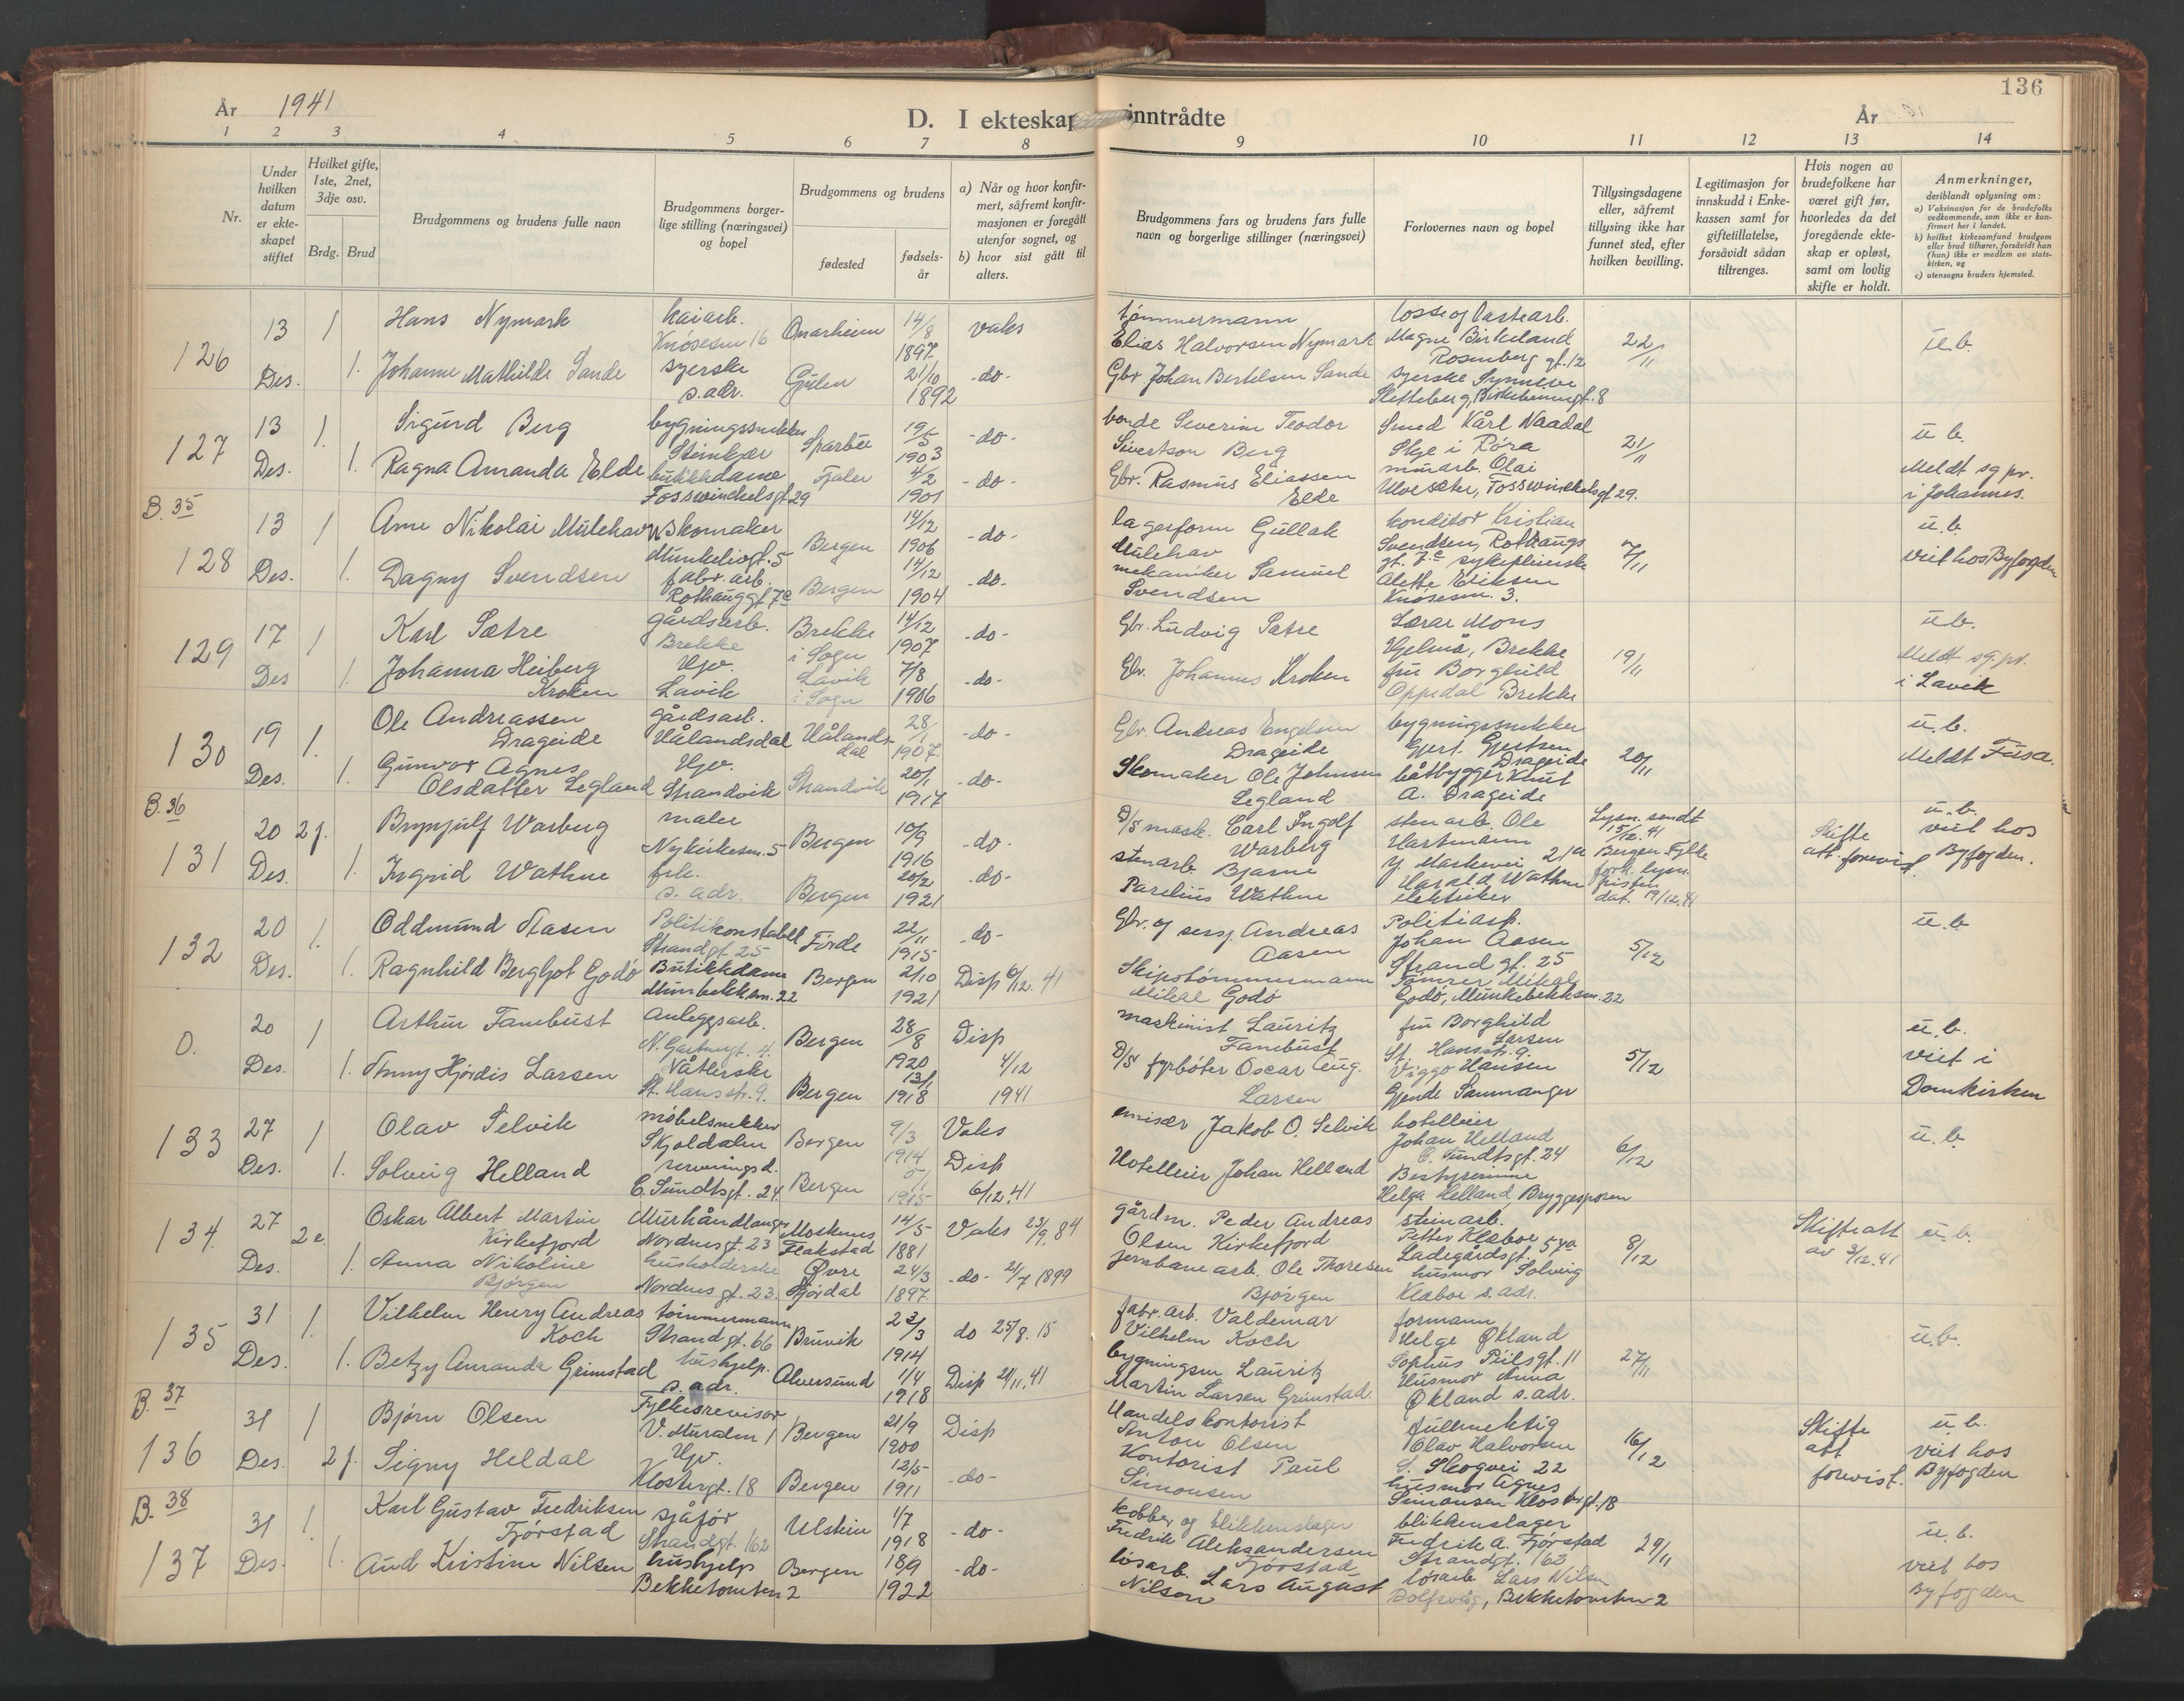 136
År 1941
D. I ekteskap inntrådte
År
1 2 3 4 5 6 7 8 9 10 11 12 13 14
Nr.
Under hvilken datum er ekteskapet stiftet
Hvilket gifte, 1ste, 2net, 3dje osv.
Brdg. Brud
Brudgommens og brudens fulle navn
Brudgommens borgerlige stilling (næringsvei) og bopel
Brudgommens og brudens
fødested
fødselsår
a) Når og hvor konfirmert, såfremt konfirmasjonen er foregått utenfor sognet, og
b) hvor sist gått til alters.
Brudgommens fars og brudens fars fulle navn og borgerlige stillinger (næringsvei)
Forlovernes navn og bopel
Tillysingsdagene eller, såfremt tillysing ikke har funnet sted, efter hvilken bevilling.
Legitimasjon for innskudd i Enkekassen samt for giftetillatelse, forsåvidt sådan tiltrenges.
Hvis nogen av brudefolkene har været gift før, hvorledes da det foregående ekteskap er opløst, samt om lovlig skifte er holdt.
Anmerkninger,
deriblandt oplysning om:
a) Vaksinasjon for de brudefolks vedkommende, som ikke er konfirmert her i landet.
b) hvilket kirkesamfund brudgom eller brud tilhører, forsåvidt han (hun) ikke er medlem av statskirken, og
c) utensogns bruders hjemsted.
126
13 Des. 1 1.
Hans Nymark
kaiarb.
Knøsesm 16
Onarheim
14/8 1897
vaks
Johanne Mathilde Sande
syerske
s. adr.
Gulen
21/10 1892
-do-
tømmermann
Elias Halvorsen Nymark
Gbr Johan Bertelsen Sande
losse og lastearb.
Magne Birkeland
Rosenberg gt. 12
syerske Synneve
Sletteberg, Birkebeinergt. 8
22/11
u.b.
127
13 Des. 1. 1.
Sigurd Berg
bygningssnekker
Steinkjær
Sparbu
19/5 1903
-do-
Ragna Amanda Elde
butikkdame
Fosswinckelsgt. 29
Fjaler
4/2 1901
-do-
bonde Severin Teodor
Sivertson Berg
Gbr. Rasmus Eliassen
Elde
Smed Kårl Naadal
Stge i Røra
murarb. Olai
Ulvesæter, Fosswinckelsgt 29.
21/11
u b.
Meldt sg pr.
i Johannes.
B. 35
128
13 Des. 1 1.
Arne Nikolai Mulehavn
skomaker
Munkeliogt. 5
Bergen
14/12 1906
-do-
Dagny Svendsen
fabr. arb.
Rothauggt 7c
Bergen
14/12 1904
-do-
lagerform Gullak
Mulehav
mekaniker Samuel
Svendsen
konditor Kristian
Svendsen, Rothaugs
gt. 7.c sykepleierske
Alette Eriksen
Knøsesm. 3.
7/11
u.b.
viet hos Byfogden
129
17 Des 1 1.
Karl Sætre
gårdsarb.
Brekke
Brekke
i Sogn
14/12 1907
-do-
Johanna Heiberg
Kroken
Hjv.
Lavik
Lavik
i Sogn
7/8 1906
-do-
Gbr. Ludvig Sætre
Gbr. Johannes Kroken
Lærar Mons
Hjelmå, Brekke
fru Borghild
Oppedal Brekke
19/11
u.b.
Meldt sg. pr.
i Lavik
130
19 Des. 1. 1.
Ole Andreassen
Drageide
gårdsarb.
Hålandsdal
Hålandsdal
28/1 1907
-do-
Gunvor Agnes
Olsdatter Legland
Hjv.
Strandvik
Strandvik
20/1 1917
-do-
Gbr. Andreas Engelsen
Drageide
Skomaker Ole Johnsen
Legland
bygningssnekker
Gjert. Gjertsen
Drageide
båtbygger Knut
A. Drageide
20/11
u.b.
Meldt Fusa.
B. 36
131
20 Des. 2 f. 1.
Brynjulf Warberg
maler
Nykirkesm. 5
Bergen
10/9 1916
-do-
Ingrid Wathne
frk.
s. adr.
Bergen
20/2 1921
-do-
D/S mask. Carl Ingolf
Warberg
stenarb. Bjarne
Parelius Wathne
stenarb. Ole
Hartmann
21a
Harald Wathne
elektriker
Lysn. sendt
15/12. 41
Bergen. Fylke
fork. lysn.
fristen
dat. 19/12.41
Skifte
att. forevist.
u.b.
viet hos
Byfogden.
132
20 Des. 1. 1.
Oddmund Aasen
Politikonstabel
Strandgt. 25
Førde
22/11 1915
-do-
Ragnhild Bergljot Godø
Butikkdame
Munkebekksm. 22
Bergen
2/10 1921
Disp 6/12. 41
Gbr. og sersj. Andreas
Aasen
Skipstømmermann
Mikal Godø
Politiasp.
Johan Aasen
Strand gt. 25
Tømrer Mikal
Godø, Munkebekksm. 22
5/12
u.b
O.
20 Des. 1 1.
Arthur Tambust
Anleggsarb.
Bergen
28/8 1920
Disp
4/12
1941
Anny Hjørdis Larsen
Våtlerske
St. Hansstr. 9.
Bergen
13/1 1918
maskinist Lauritz
Fambust
D/S fyrbøter Oscar Aug.
Larsen
fru Borghild
Larsen
St. Hansstr. 9.
Viggo Hansen
Gjende Sammanger
5/12
u.b.
viet i
Domkirken
133
27 Des. 1 1.
Olav Selvik
møbelsnekker
Skjoldalen
Bergen
9/3 1914
Vaks
Solveig Helland
serveringsd.
C. Sundtsgt. 24
Bergen
5/1 1915
Disp
6/12.41
emisær Jakob O. Selvik
Hotelleier Johan Helland
hotelleier
Johan Helland
C. Sundtsgt. 24
Bestyrerinne
Helga Helland Bryggesporen
6/12
u.b.
134.
27 Des. 2 e. 1.
Oskar Albert Martin
Kirkefjord
Murhåndlanger
Nordnesgt. 23
Moskenes
Flakstad
14/5 1881
Vaks 23/9. 84
Anna Nikoline
Bjørgen
husholderske
Nordnes gt. 23.
Øvre
Stjørdal
24/3 1897
-do- 21/7 1899
gårdm. Peder Andreas
Olsen Kirkefjord
jernbanearb. Ole Thoresen
Bjørgen
steinarb.
Petter Klæboe
Ladegårdsgt. 57a
husmor Solveig
Klæboe s. adr.
8/12
Skifteatt
av 3/12. 41
u.b.
135
31 Des. 1. 1.
Vilhelm Henry Andreas
Koch
tømmermann
Strandgt. 66
Bruvik
23/3 1914
do 25/8. 15
Betzy Amanda Grimstad
hushjelp.
s. adr.
Alversund
1/4 1918
Disp 21/11. 41
fabr. arb. Valdemar
Vilhelm Koch
bygningsm Lauritz
Martin Larsen Grimstad.
formann
Helge Økland
Sophus Piilsgt. 11
Husmor Anna
Økland s. adr.
27/11
u.b.
B. 37
136
31 Des. 1 2 f.
Bjørn Olsen
Fylkesrevisor
V. Muralm 1
Bergen
21/9 1900
Disp
Signy Heldal
Hjv.
Klostergt. 18
Bergen
12/5 1911
-do-
Handelskontorist
Anton Olsen
Kontorist Paul
Simonsen
fullmektig
Olav Halvorsen
S. Skogvei 22
husmor Agnes
Simonsen Klostergt. 18
16/12
Skifte
att
forevist.
u.b.
viet hos
Byfogden
B. 38
137
31 Des. 1. 1.
Karl Gustav Fredriksen
Tjørstad
sjåfør
Strandgt. 162
Ulstein
1/7 1918
-do-
Aud Kristine Nilsen
hushjelp
Bekketomten 2
Bergen
18/9 1922
-do-
kobber og blikkenslager
Fredrik Aleksandersen
Tjørstad
løsarb. Lars August
Nilsen
blikkenslager
Fredrik A. Tjørstad
Strandgt. 163
løsarb Lars Nilsen
Dolfsvåg, Bekketomten 2
29/11
u.b.
viet hos
Byfogden